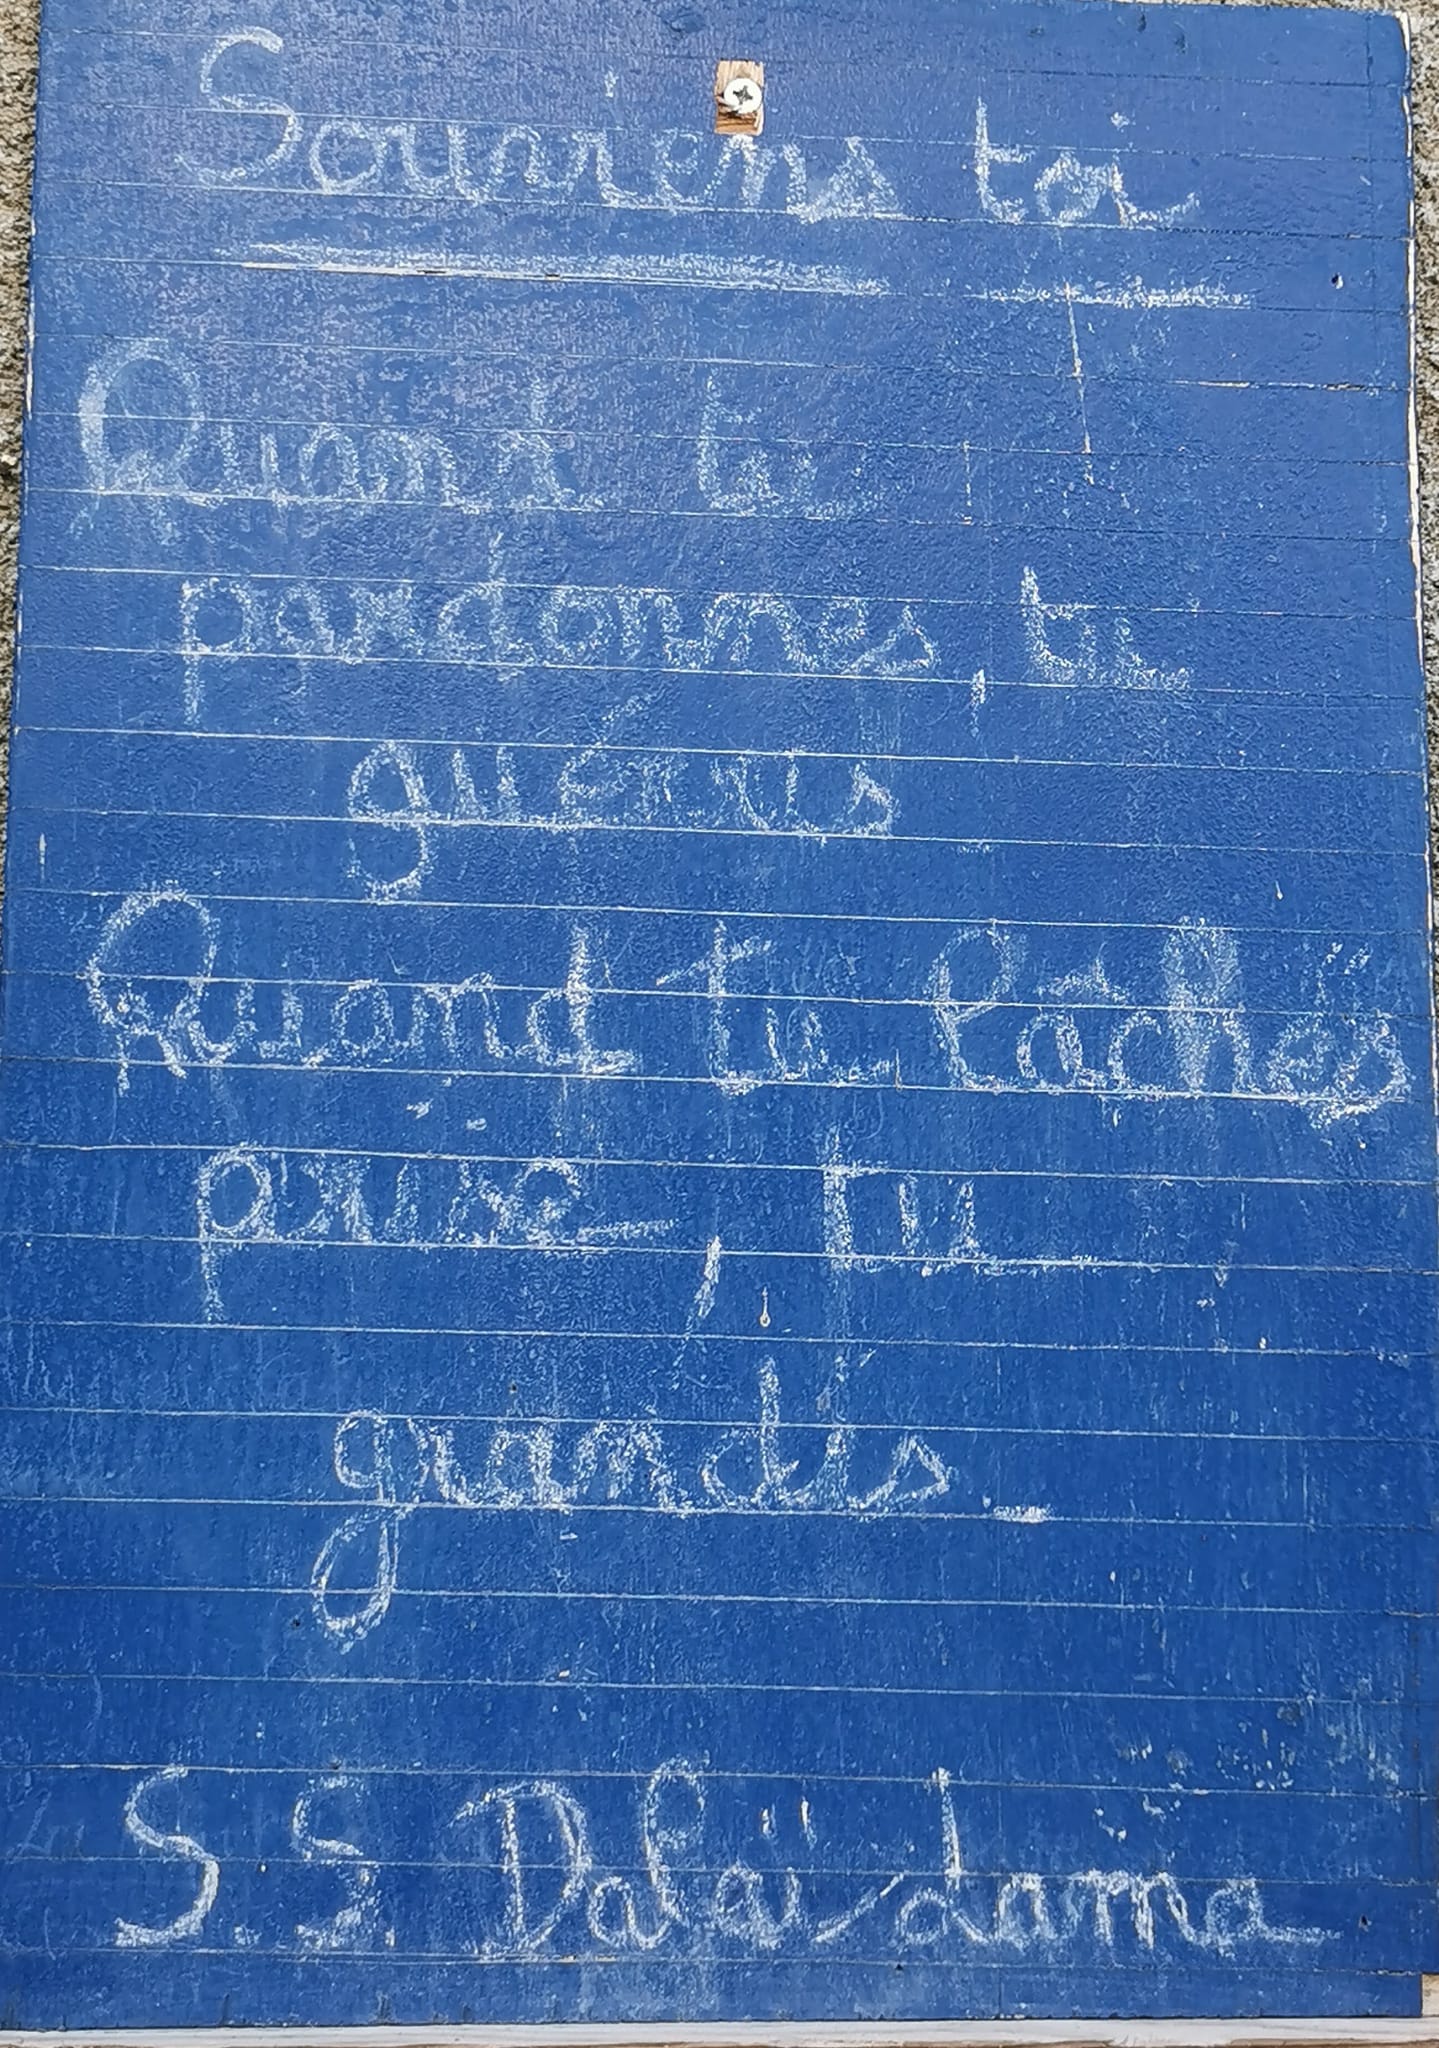 Souviens toi
Quand tu
pardonnes, tu
guéris
Quand tu lâches
prise, tu
grandis_
S.S. Dalaï Lama